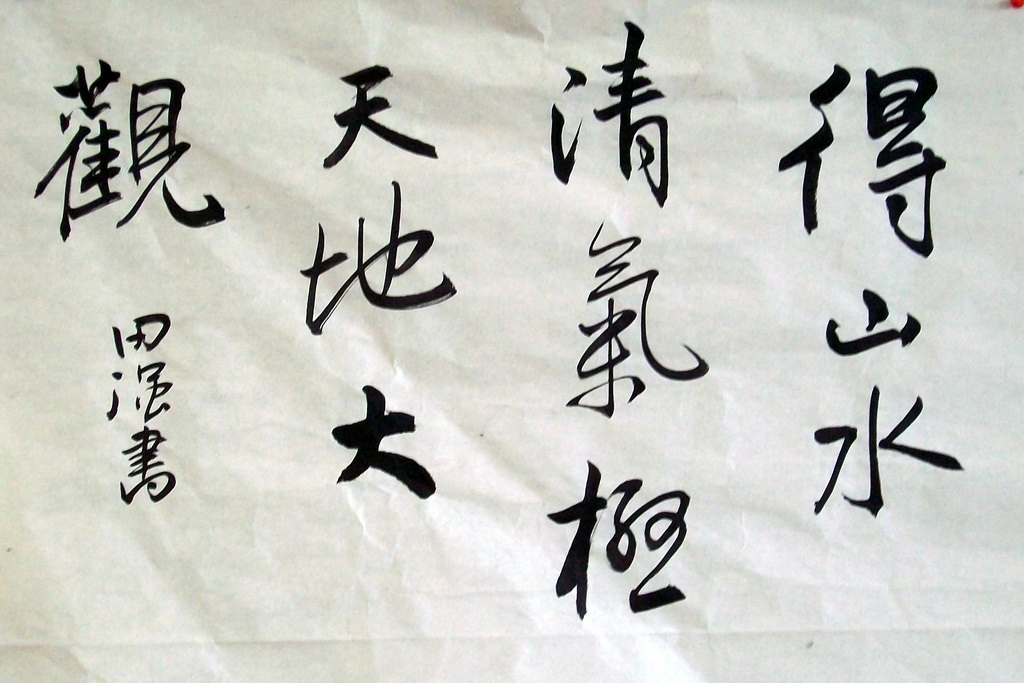 得山水
清氣極
天地大
觀
田涇書